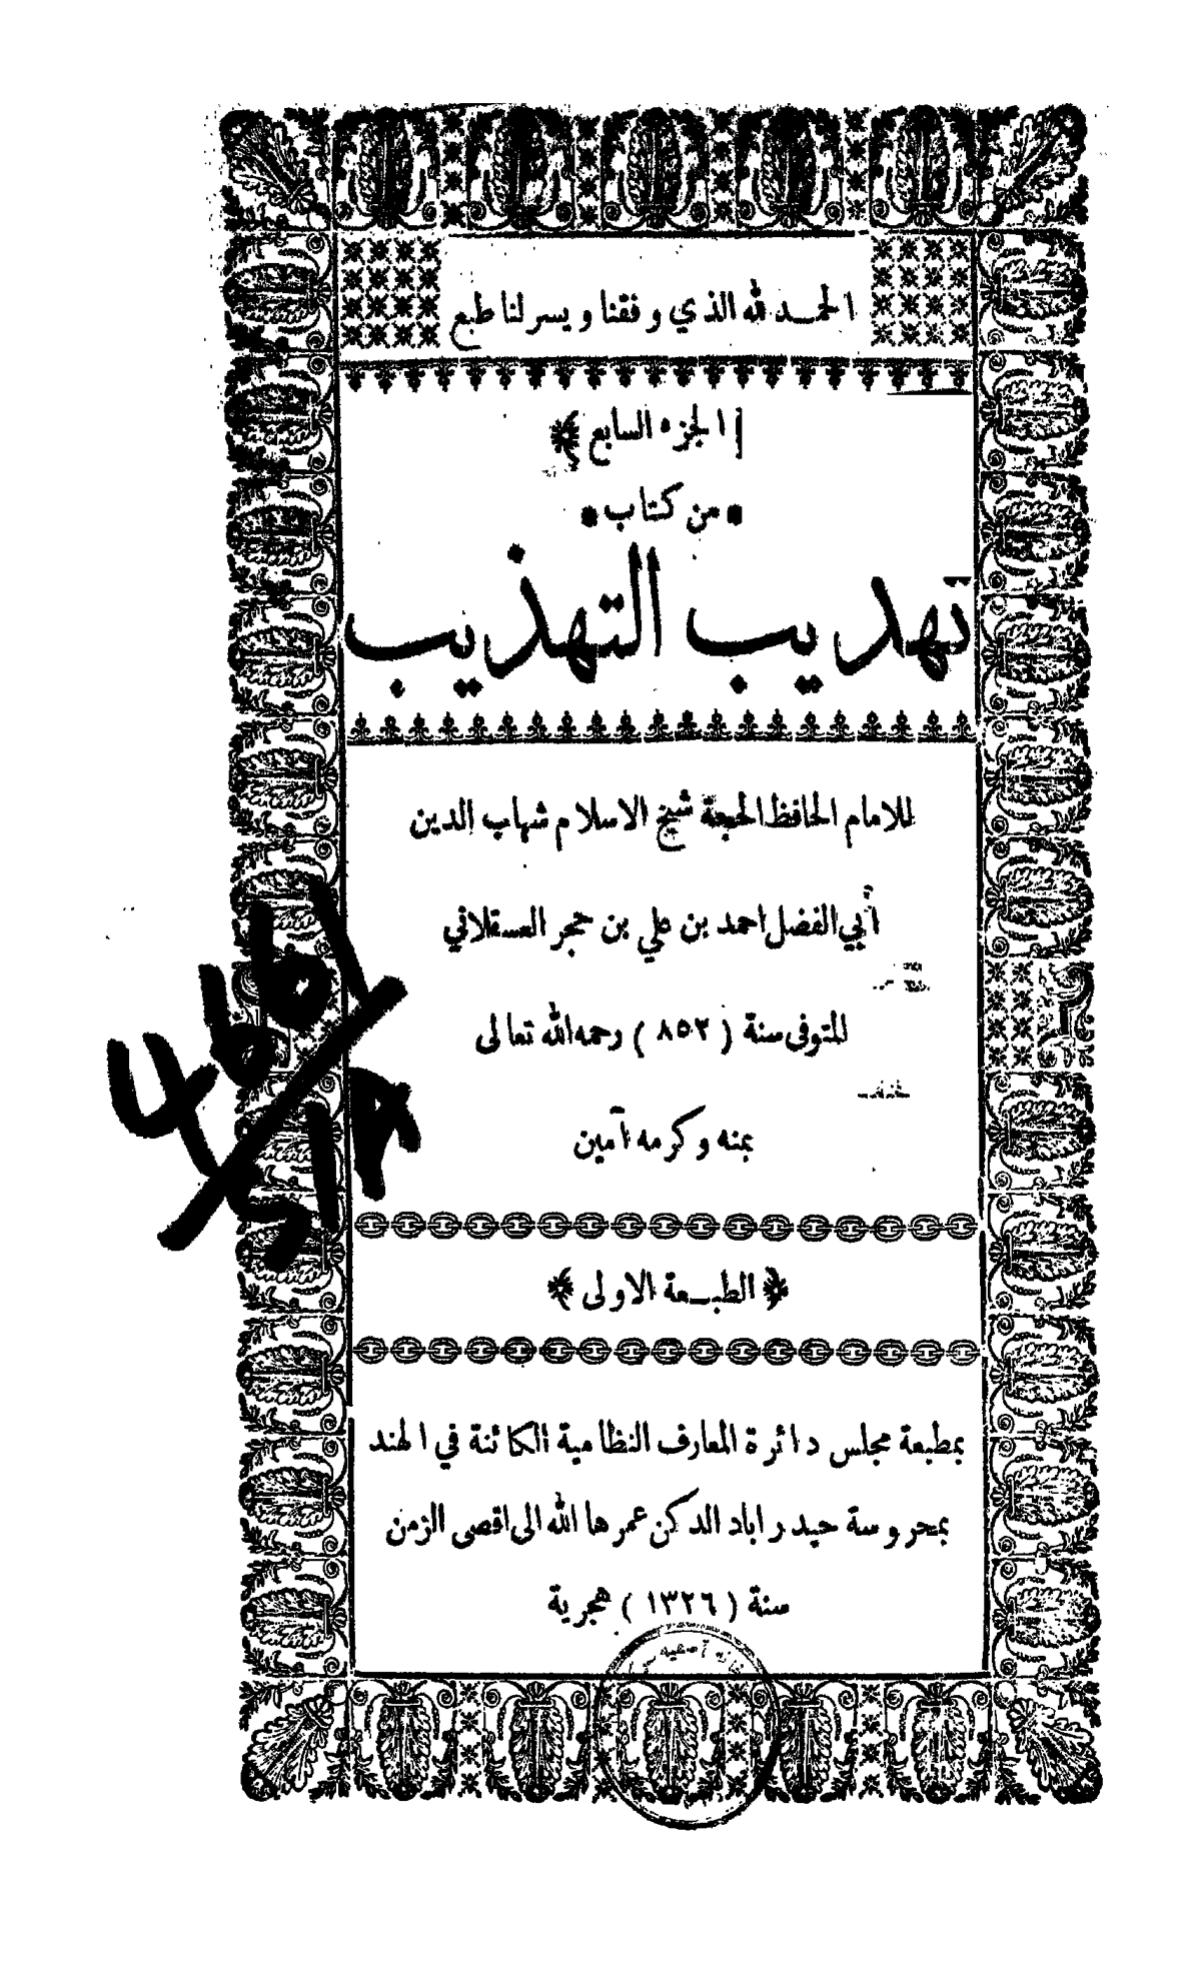 الحمد لله الذي وفقنا ويسر لنا طبع
الجزء السابع
من كتاب
تهذيب التهذيب
للامام الحافظ الحجة شيخ الاسلام شهاب الدين
أبي الفضل احمد بن علي بن حجر العسقلاني
المتوفى سنة ( ٨٥٢ ) رحمه الله تعالى
بمنه وكرمه آمين
الطبعة الاولى
بمطبعة مجلس دائرة المعارف النظامية الكائنة في الهند
بمحروسة حيدر اباد الدكن عمرها الله الى اقصى الزمن
سنة ( ١٣٢٦ ) هجرية